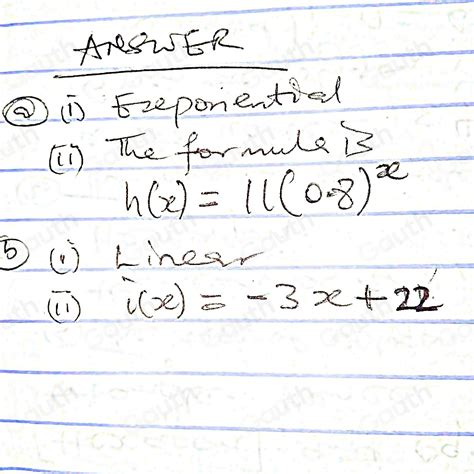 ANSWER
(a) (i) Exponential
(ii) The formula is
h(x) = 11(0.8)^x
(b) (i) Linear
(ii) i(x) = -3x + 22